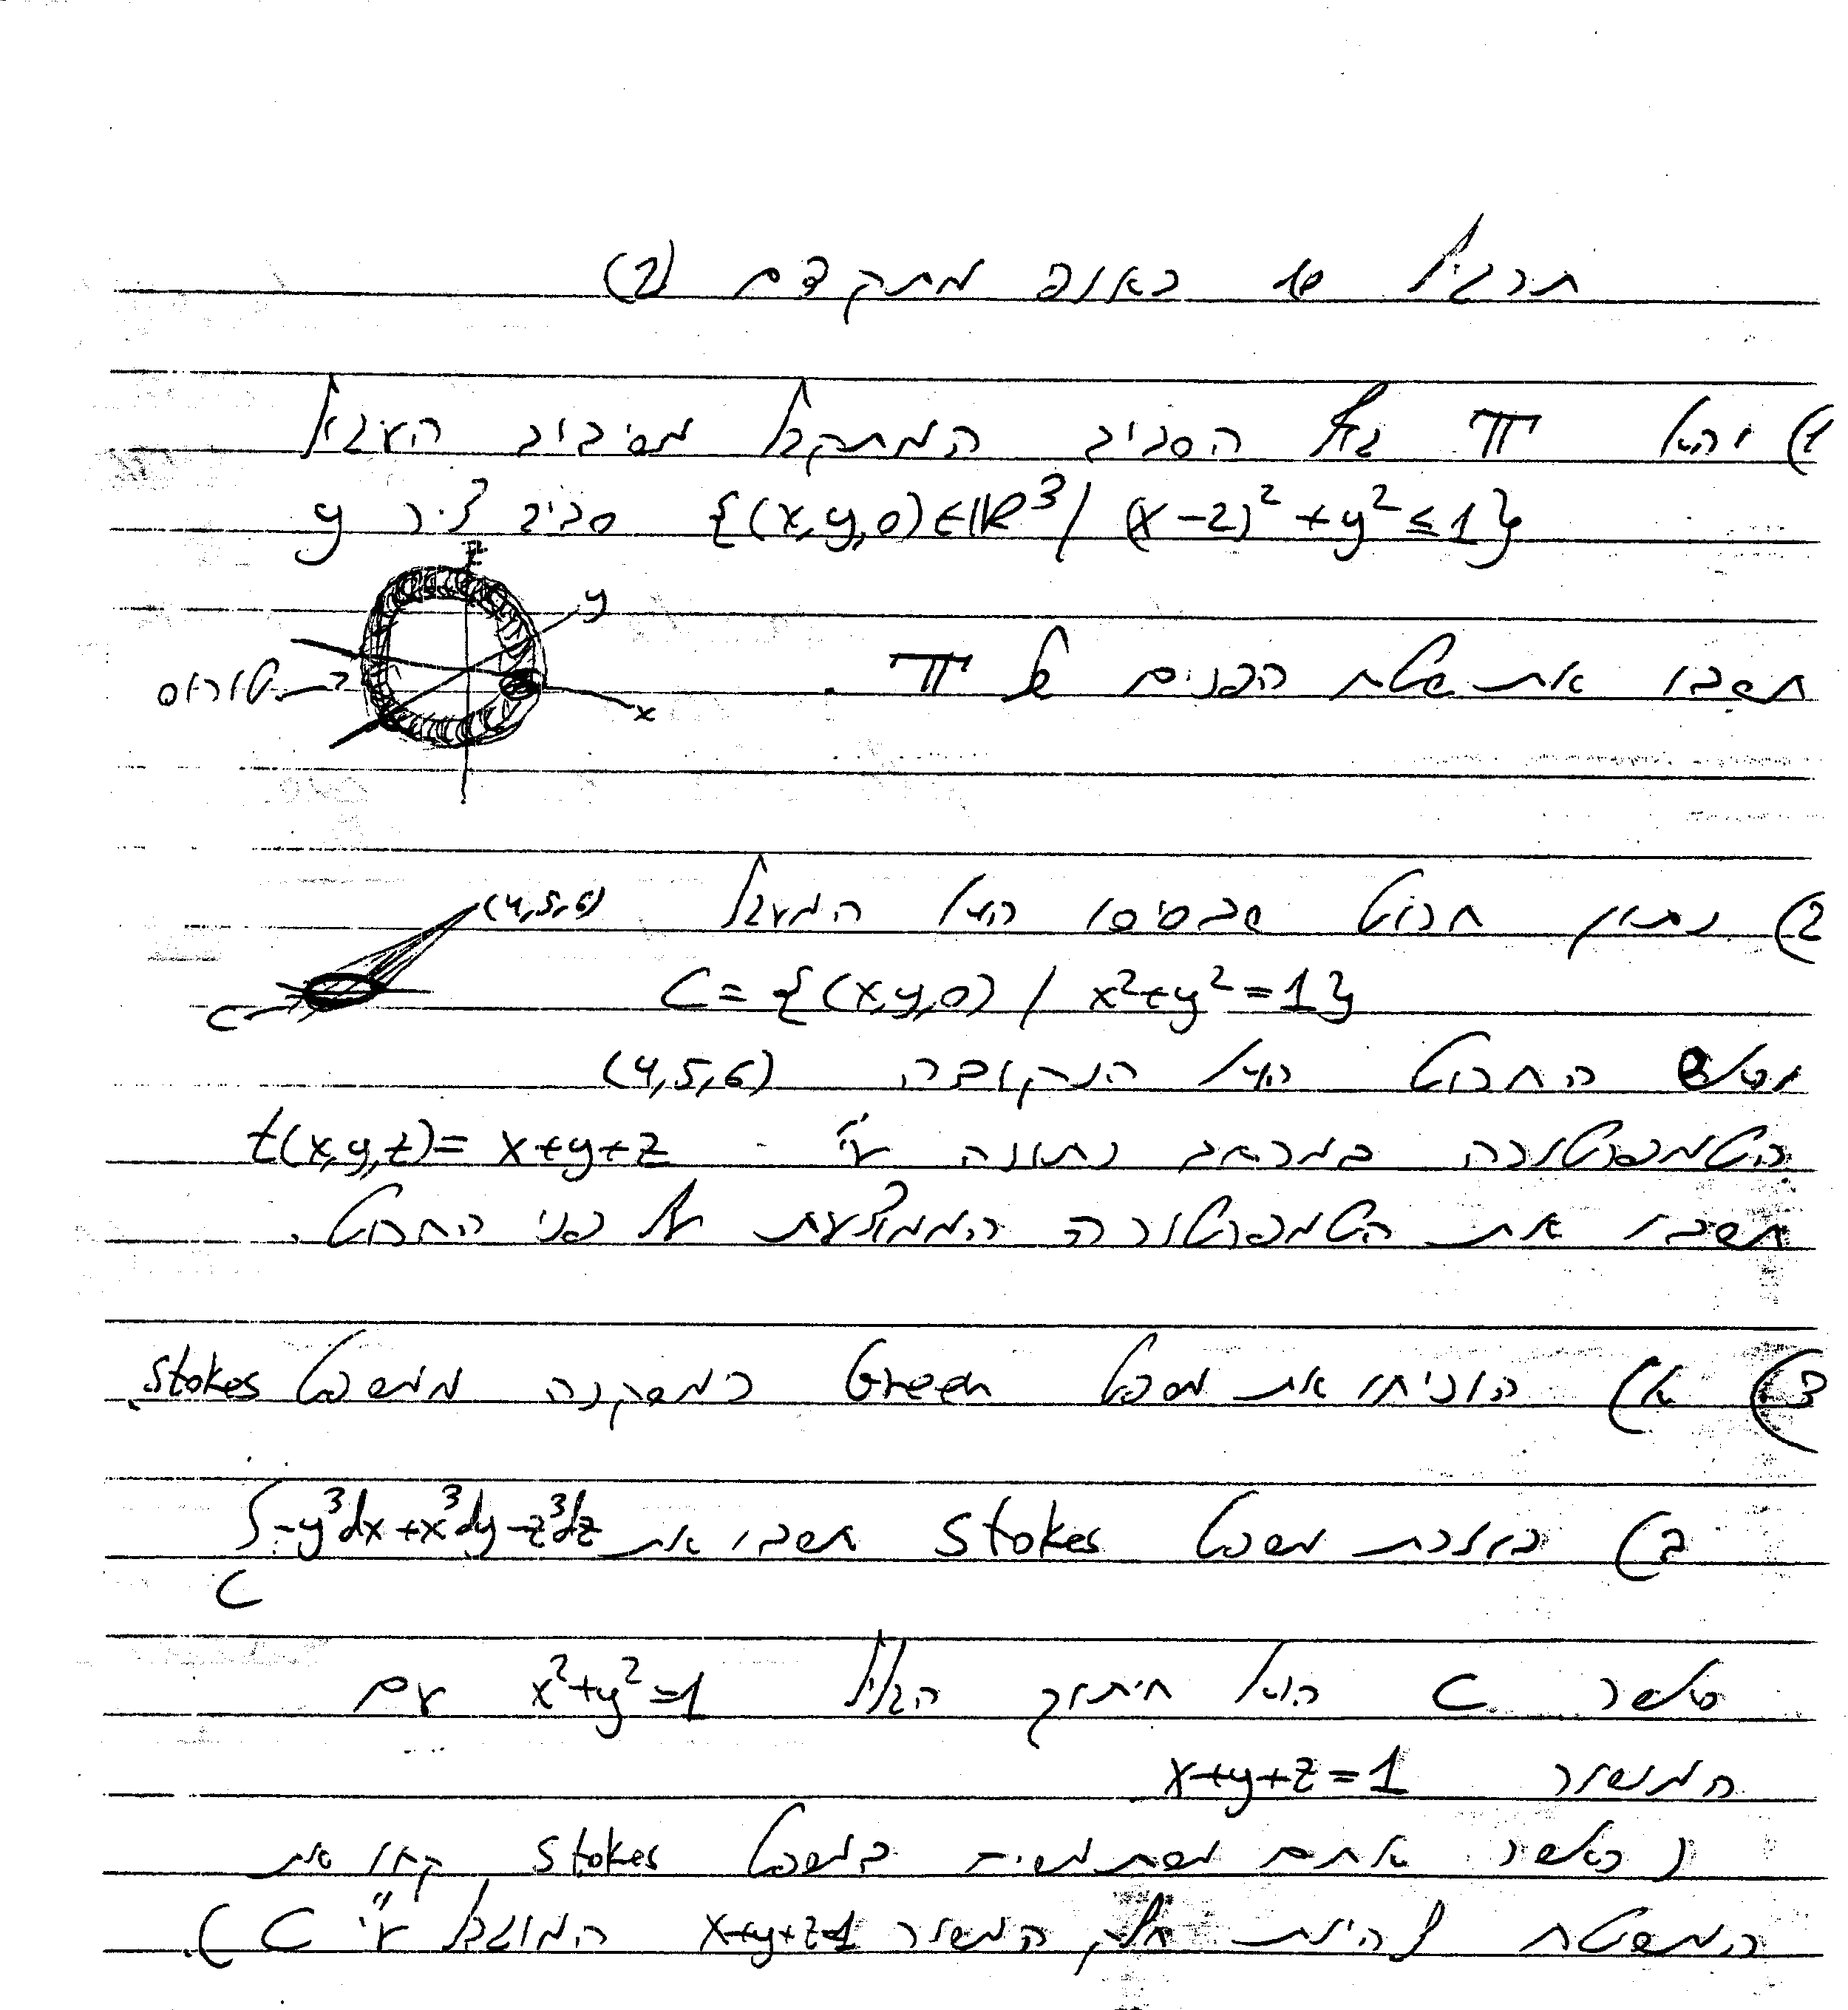 תרגיל 10 באינפ מתקדם (2)
1) יהא π גוף הסביב המתקבל מסיבוב העגול
{(x,y,0)∈ℝ³ / (x-2)²+y²≤1} סביב ציר y
z
y
חשבו את שטח הפנים של π.
טורוס
x
2) נתון חרוט שבסיסו הוא המעגל
(4,5,6)
C={(x,y,0) / x²+y²=1}
C
החרוט הוא הנקודה (4,5,6)
הטמפרטורה במרחב נתונה ע"י t(x,y,z)=x+y+z
חשבו את הטמפרטורה הממוצעת על פני החרוט.
3) א) הוכיחו את משפט Green כמסקנה ממשפט Stokes.
ב) בעזרת משפט Stokes חשבו את ∫-y³dx+x³dy-z³dz
C
כאשר C הוא חיתוך הגליל x²+y²=1 עם
המישור x+y+z=1
(כאשר אתם משתמשים במשפט Stokes קחו את
המשטח להיות חלק המישור x+y+z=1 המוגבל ע"י C).